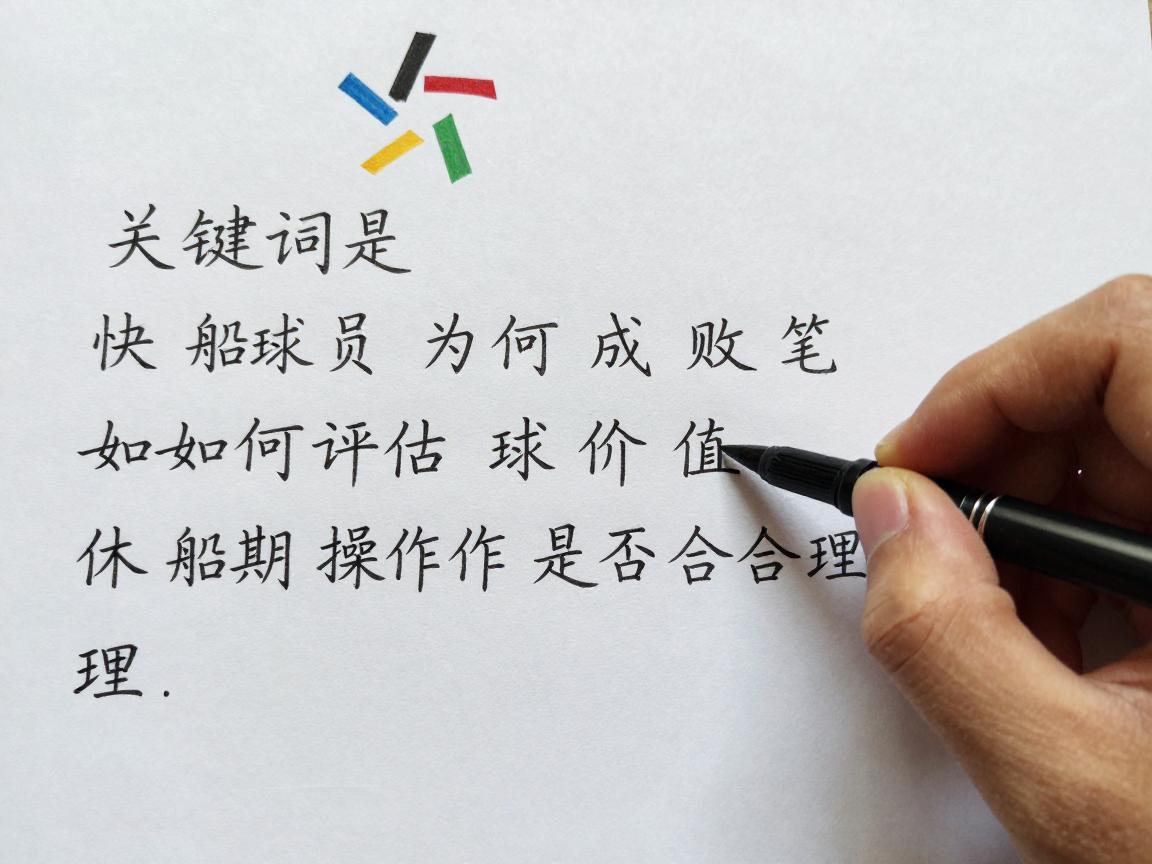 关键词是
快船球员为何成败笔
如如何评估球价值
休船期操作作是否合合理
理.